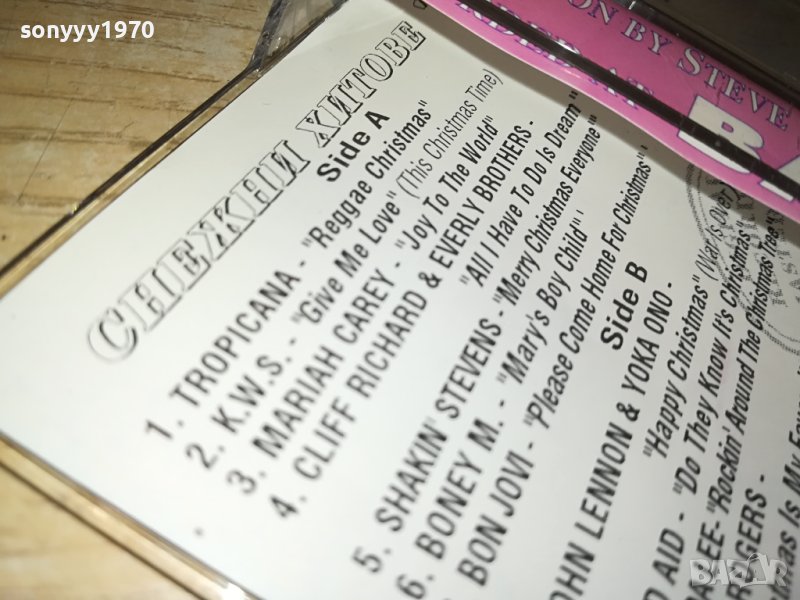 sonyyy1970
ON BY STEVE
СНЕЖНИ ХИТОВЕ
Side A
1. TROPICANA - "Reggae Christmas"
2. K.W.S. - "Give Me Love" (This Christmas Time)
3. MARIAH CAREY - "Joy To The World"
4. CLIFF RICHARD & EVERLY BROTHERS -
"All I Have To Do Is Dream"
5. SHAKIN' STEVENS - "Merry Christmas Everyone"
6. BONEY M. - "Mary's Boy Child"
BON JOVI - "Please Come Home For Christmas"
Side B
OHN LENNON & YOKA ONO -
"Happy Christmas" (War is Over
D AID - "Do They Know It's Christmas"
LEE- "Rockin' Around The Christmas Tree"
RS -
as Is My Fav
BAZAR